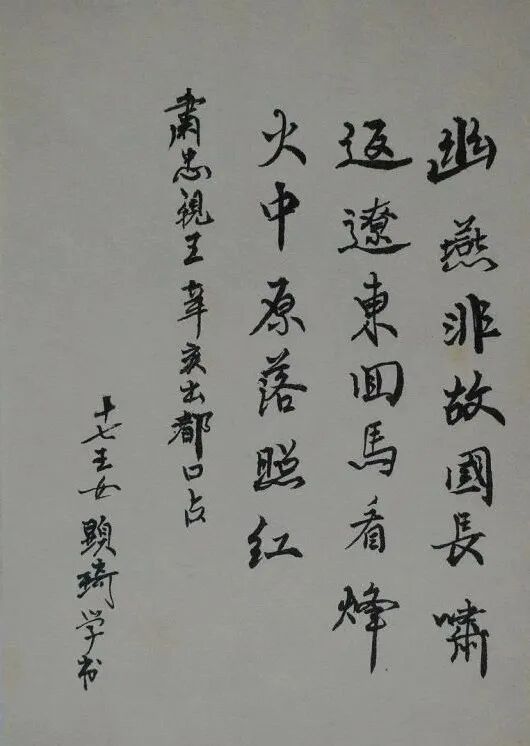 幽燕非故國長嘯
返遼東回馬看烽
火中原落照紅
肅忠親王辛亥出都口占
十七王女顯琦学书